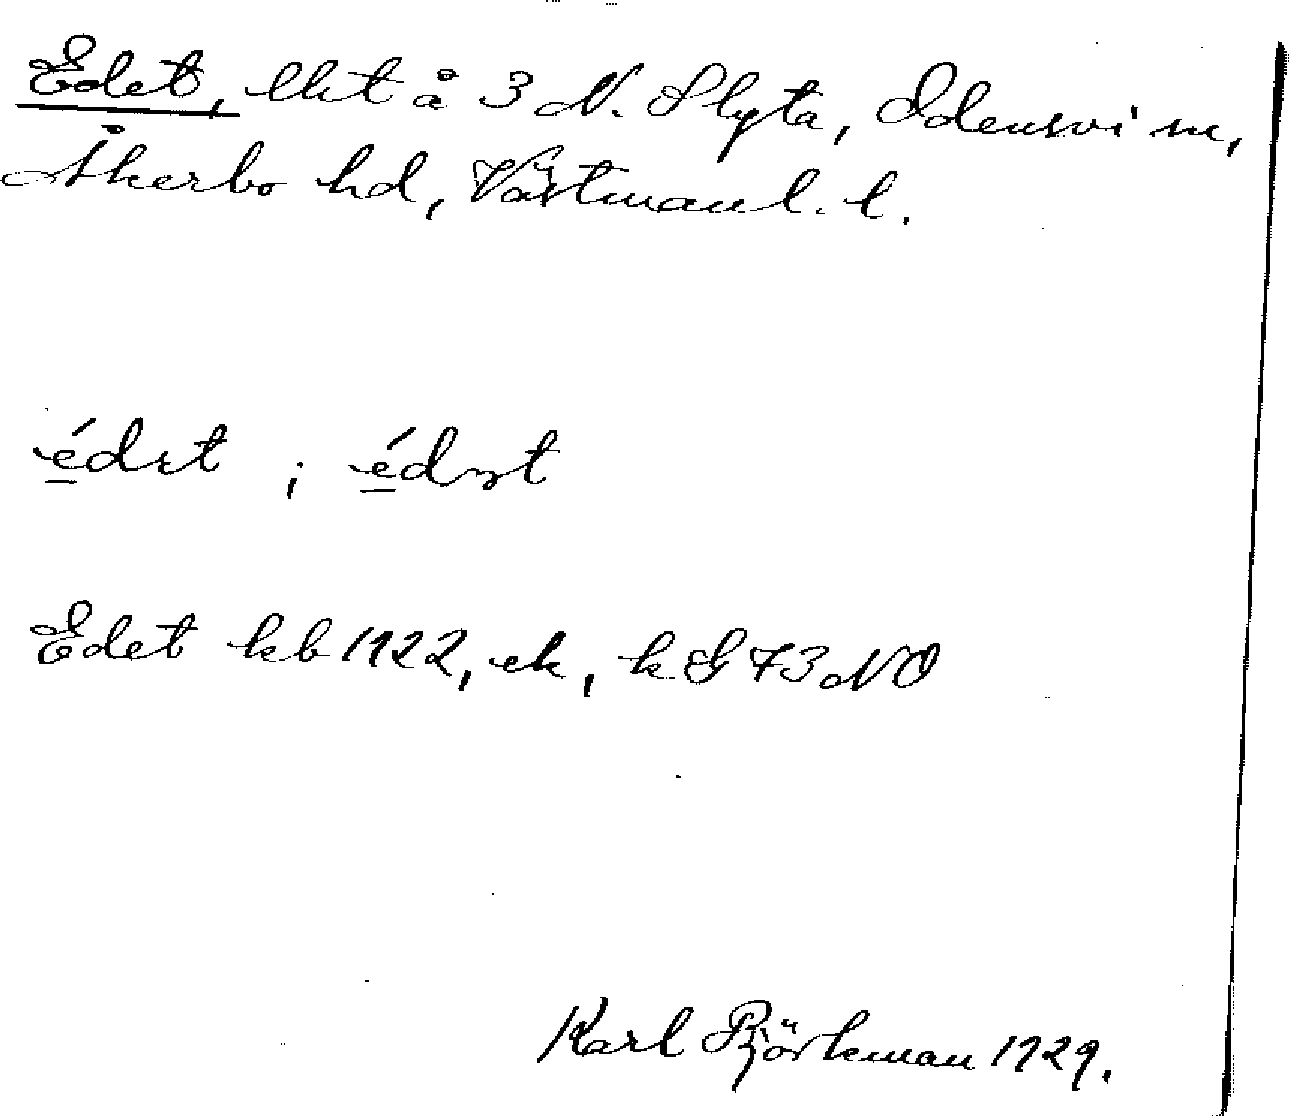 Edet, lht å 3 N. Slyta, Odensvi sn,
Åkerbo hd, Västmanl. l.
édet ; édt
Edet kb 1922, ek, k. G 73 NO
Karl Björkman 1929.